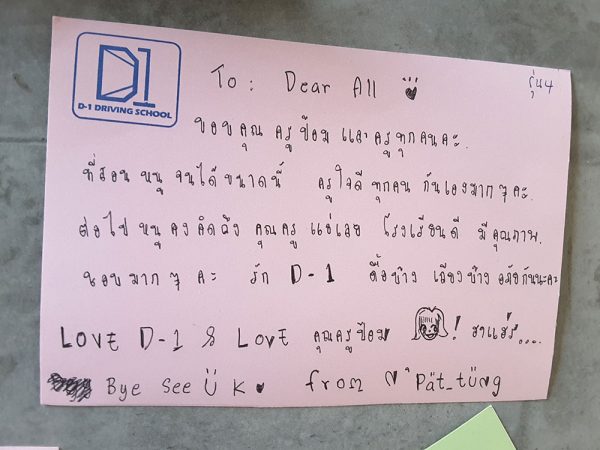 D1
D-1 DRIVING SCHOOL
To : Dear All
รุ่น4
ขอบคุณ ครูป้อม และครูทุกคนคะ.
ที่สอน หนู จนได้ขนาดนี้ ครูใจดีทุกคน กันเองมาก ๆ คะ.
ต่อไป หนู คงคิดถึง คุณครู แย่เลย โรงเรียนดี มีคุณภาพ.
ชอบ มาก ๆ คะ รัก D-1 ดื้อบ้าง เถียงบ้าง อภัยกันนะคะ
LOVE D-1 & LOVE คุณครูป้อม ! ฮาแฮร์....
Bye See Ü K from Pät_tüng